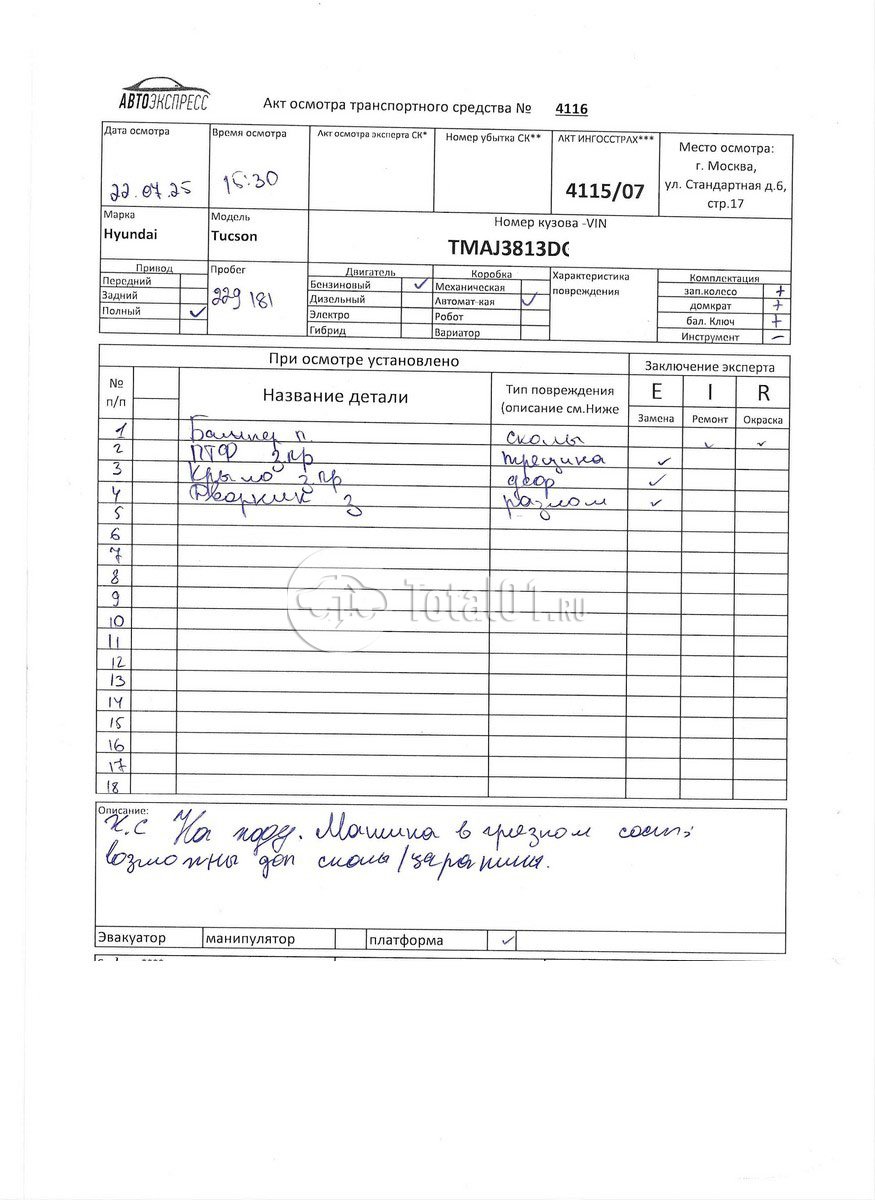 АВТОЭКСПРЕСС
Акт осмотра транспортного средства № 4116
Дата осмотра Время осмотра Акт осмотра эксперта СК* Номер убытка СК** АКТ ИНГОССТРАХ*** Место осмотра:
г. Москва,
ул. Стандартная д.6,
стр.17
22.07.25 15:30 4115/07
Марка Модель Номер кузова -VIN
Hyundai Tucson TMAJ3813D
Привод Пробег Двигатель Коробка Характеристика повреждения Комплектация
Передний Бензиновый ✓ Механическая зап.колесо +
Задний 229 181 Дизельный Автомат-кая ✓ домкрат +
Полный ✓ Электро Робот бал. Ключ +
Гибрид Вариатор Инструмент –
При осмотре установлено Заключение эксперта
№ п/п Название детали Тип повреждения (описание см.Ниже E I R
Замена Ремонт Окраска
1 Бампер п. сколы ✓ ✓
2 ПТФ з пр трещина ✓
3 Крыло з пр дфор ✓
4 Дворник з разлом ✓
5
6
7
8
9
10
11
12
13
14
15
16
17
18
Total01.RU
Описание:
К.С На ходу. Машина в грязном сост,
возможны доп сколы/царапины.
Эвакуатор манипулятор платформа ✓